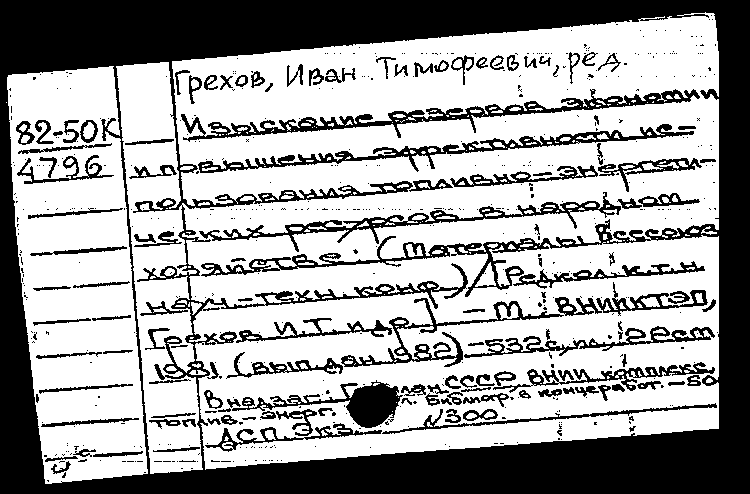 Грехов, Иван Тимофеевич, ред.
82-50К Изыскание резервов экономии
4796 и повышения эффективности ис-
пользования топливно-энергети-
ческих ресурсов в народном
хозяйстве. (Материалы Всесоюз
науч.-техн. конф.) / [Редкол. к.т.н.
Грехов И.Т. и др.] - М.: ВНИИКТЭП,
1981 (вып. дан. 1982) - 532 с., ил.; 22 см
В надзаг.: СССР ВНИИ комплекс.
топлив.-энерг. Библиогр. в конце работ. - 50
ДСП. Экз. №300